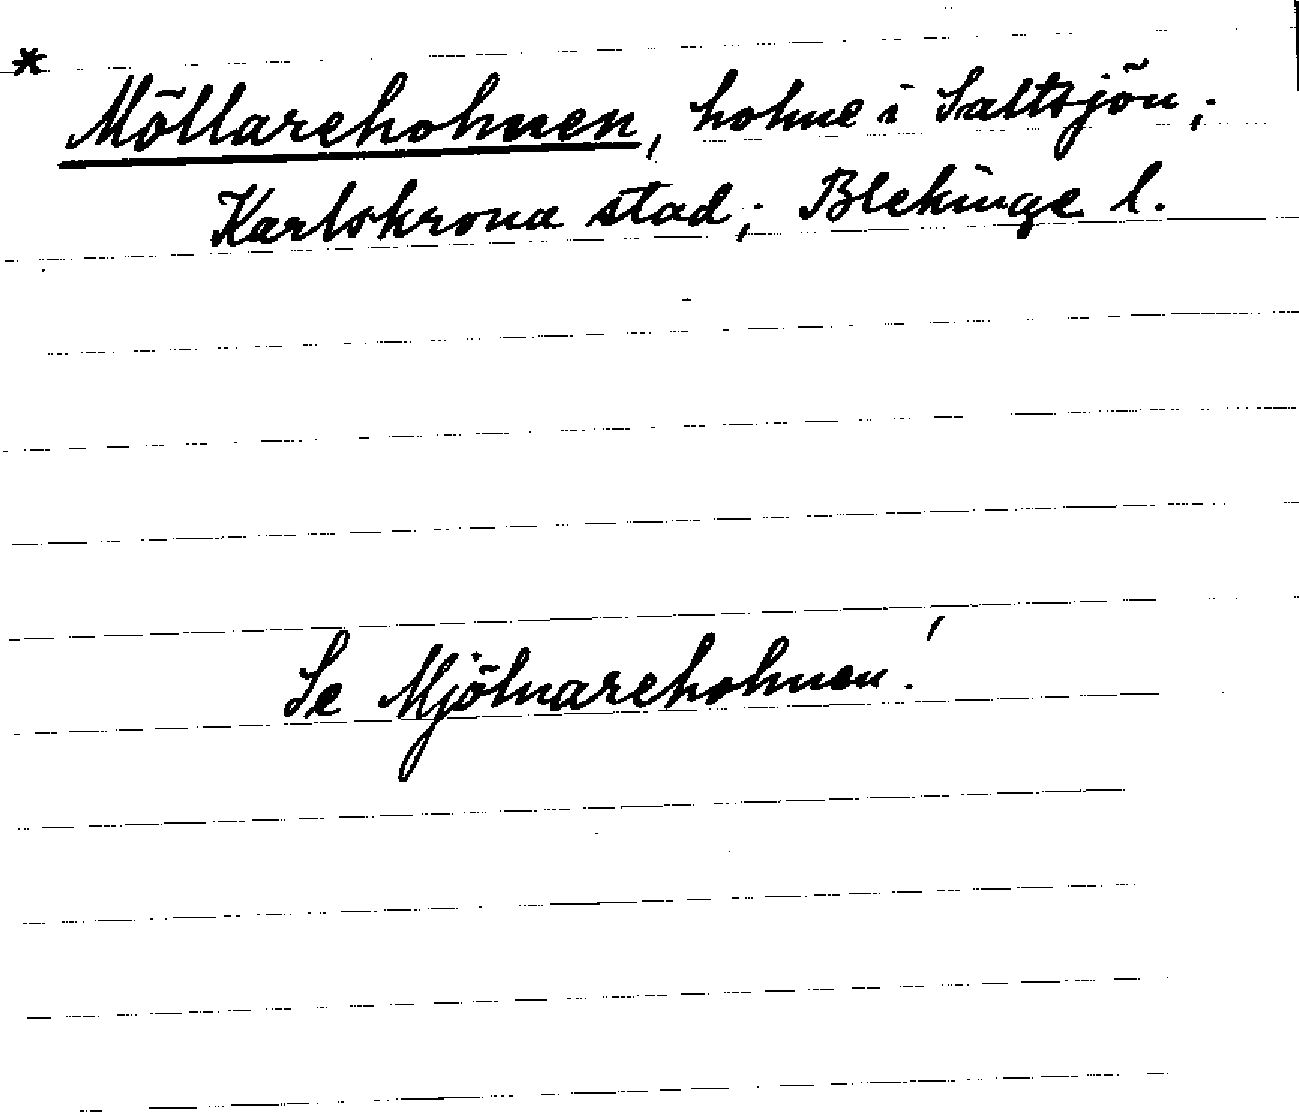 * Möllareholmen, holme i Saltsjön;
Karlskrona stad; Blekinge l.
Se Mjölnareholmen!